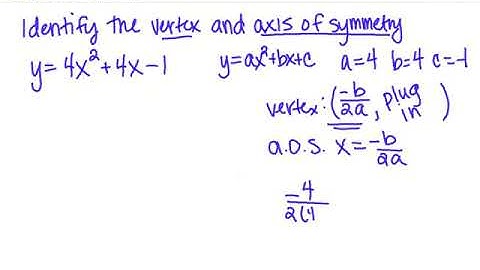 Identify the vertex and axis of symmetry
y=4x²+4x-1 y=ax²+bx+c a=4 b=4 c=-1
vertex: (-b/2a, plug in )
a.o.s. x=-b/2a
-4/2(4